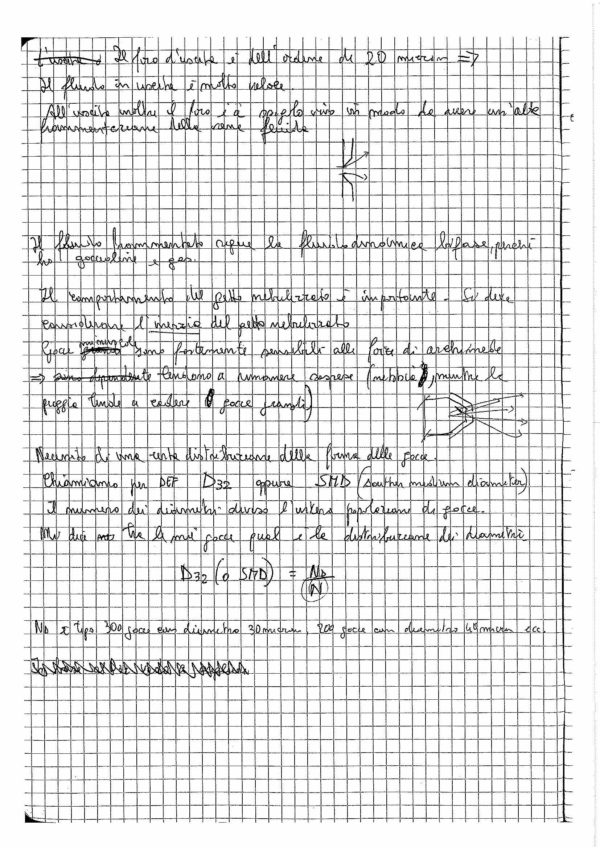 Il foro d'uscita è dell'ordine di 20 micron =>
Il fluido in uscita è molto veloce
All'uscita inoltre il foro è a spigolo vivo in modo da aver un'alta
frammentazione della vena fluida
Il fluido frammentato segue la fluidodinamica bifase, perché
ho goccioline e gas.
Il comportamento del getto nebulizzato è importante - Si deve
considerare l'inerzia del getto nebulizzato
Gocce minuscole sono fortemente sensibili alle forze di archimede
=> tendono a rimanere sospese (nebbia), mentre la
pioggia tende a cadere (gocce grandi)
Necessito di una certa distribuzione della forma delle gocce.
Chiamiamo per DEF D32 oppure SMD (souther medium diameter)
il numero dei diametri diviso l'intera popolazione di gocce.
Mi dice tra le mie gocce qual è la distribuzione dei diametri.
D32 (o SMD) = ND / N
ND è tipo 300 gocce con diametro 30 micron, 200 gocce con diametro micron ecc.